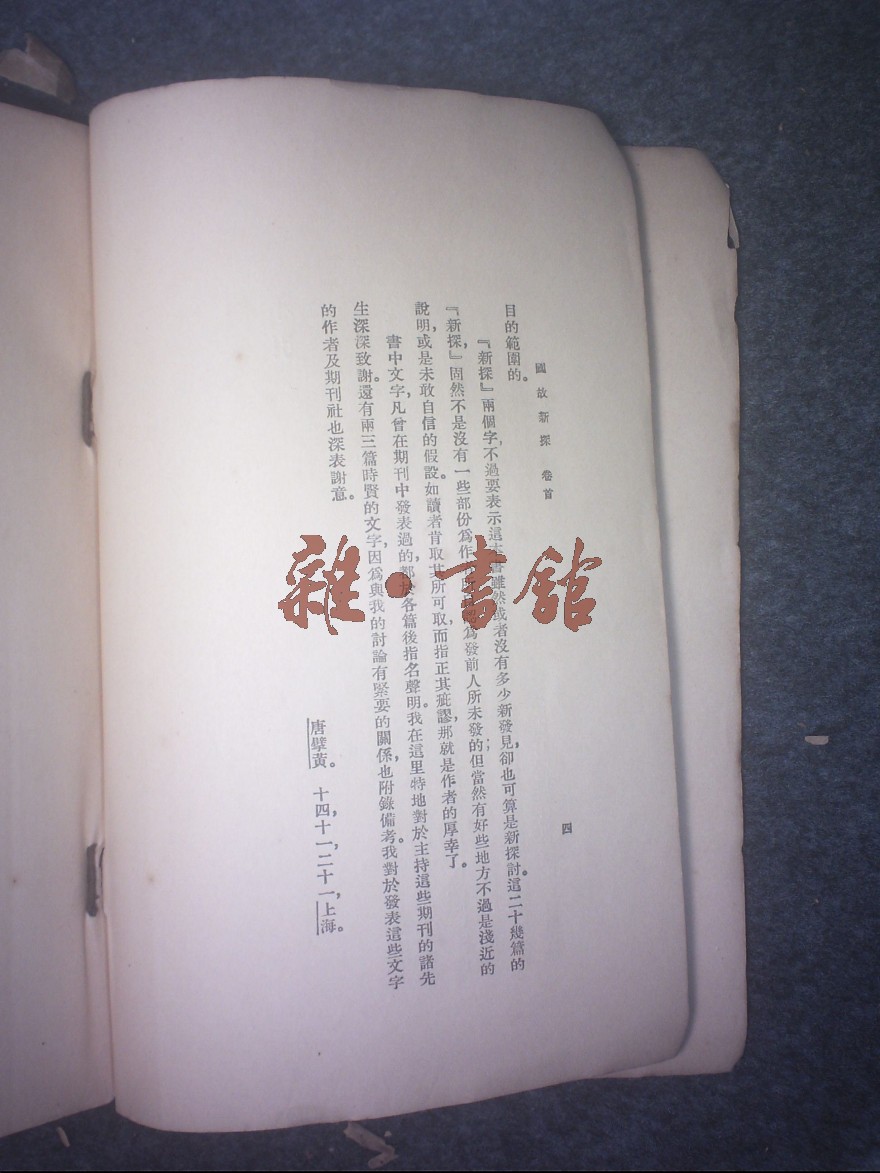 國故新探 卷首
四
目的範圍的。
『新探』兩個字,不過要表示這書雖然或者沒有多少新發見,卻也可算是新探討。這二十幾篇的
『新探,』固然不是沒有一些部份爲作爲發前人所未發的;但當然有好些地方不過是淺近的
說明,或是未敢自信的假設。如讀者肯取其所可取,而指正其疵謬,那就是作者的厚幸了。
書中文字,凡曾在期刊中發表過的,都於各篇後指名聲明。我在這里特地對於主持這些期刊的諸先
生深深致謝。還有兩三篇時賢的文字,因爲與我的討論有緊要的關係,也附錄備考。我對於發表這些文字
的作者及期刊社也深表謝意。
唐擘黃。 十四,十一,二十一,上海。
雜·書館